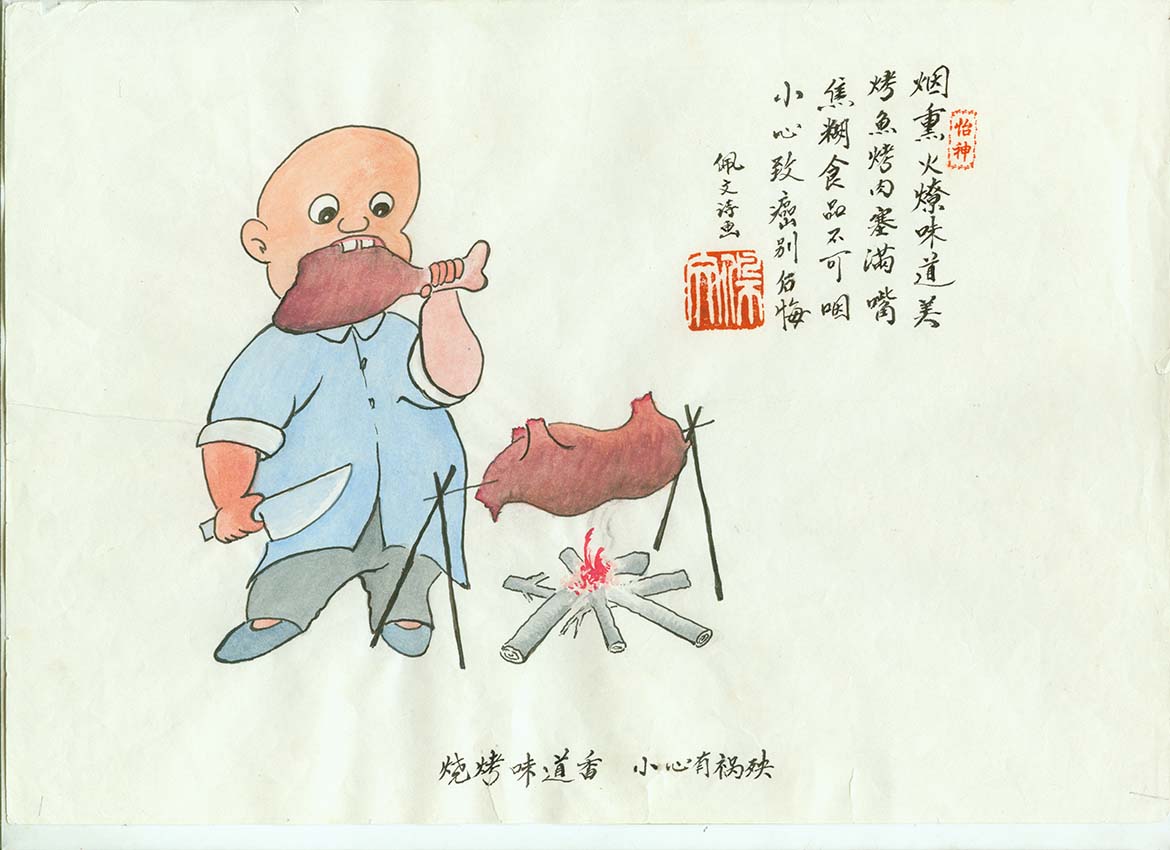 烟熏火燎味道美
怡神
烤魚烤肉塞滿嘴
焦糊食品不可咽
小心致癌别后悔
佩文诗画
烧烤味道香 小心有祸殃